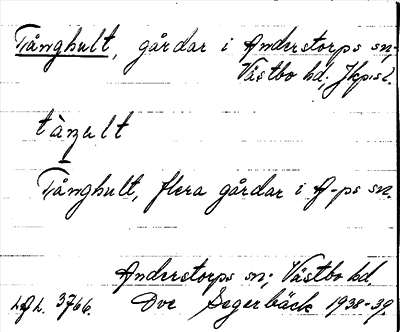 Tånghult, gårdar i Anderstorps sn;
Västbo hd, Jkp:s l.
tàŋult
Tånghult, flera gårdar i A-ps sn.
Anderstorps sn; Västbo hd.
3766. Ove Segerbäck 1938-39.